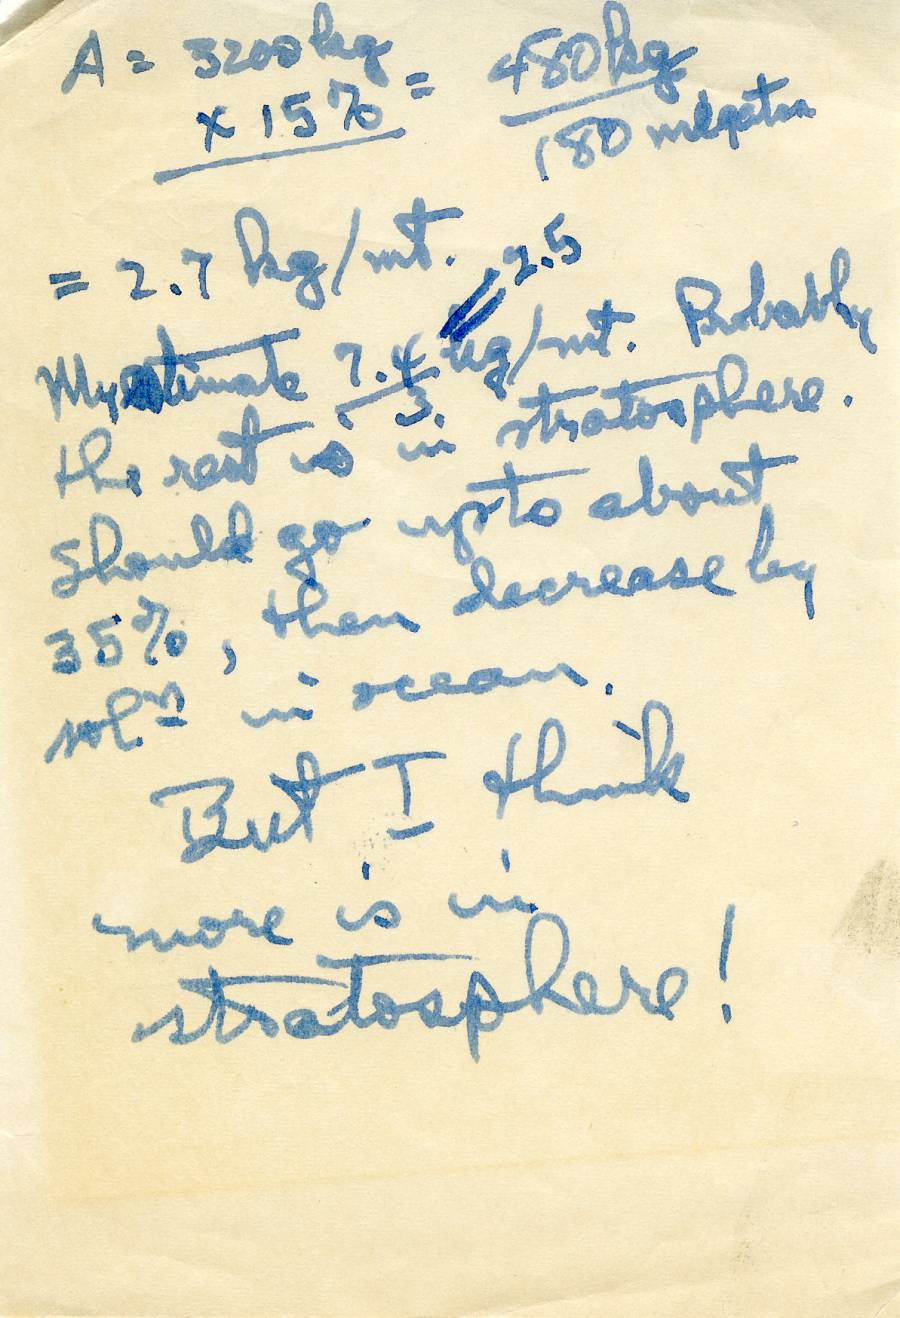 A = 3200 kg = 480 kg
x 15% 180 megatn
= 2.7 kg/mt.
= 2.5
My estimate 7.4/3. kg/mt. Probably
the rest is in stratosphere.
Should go up to about
35%, then decrease by
sol.n in ocean.
But I think
more is in
stratosphere!